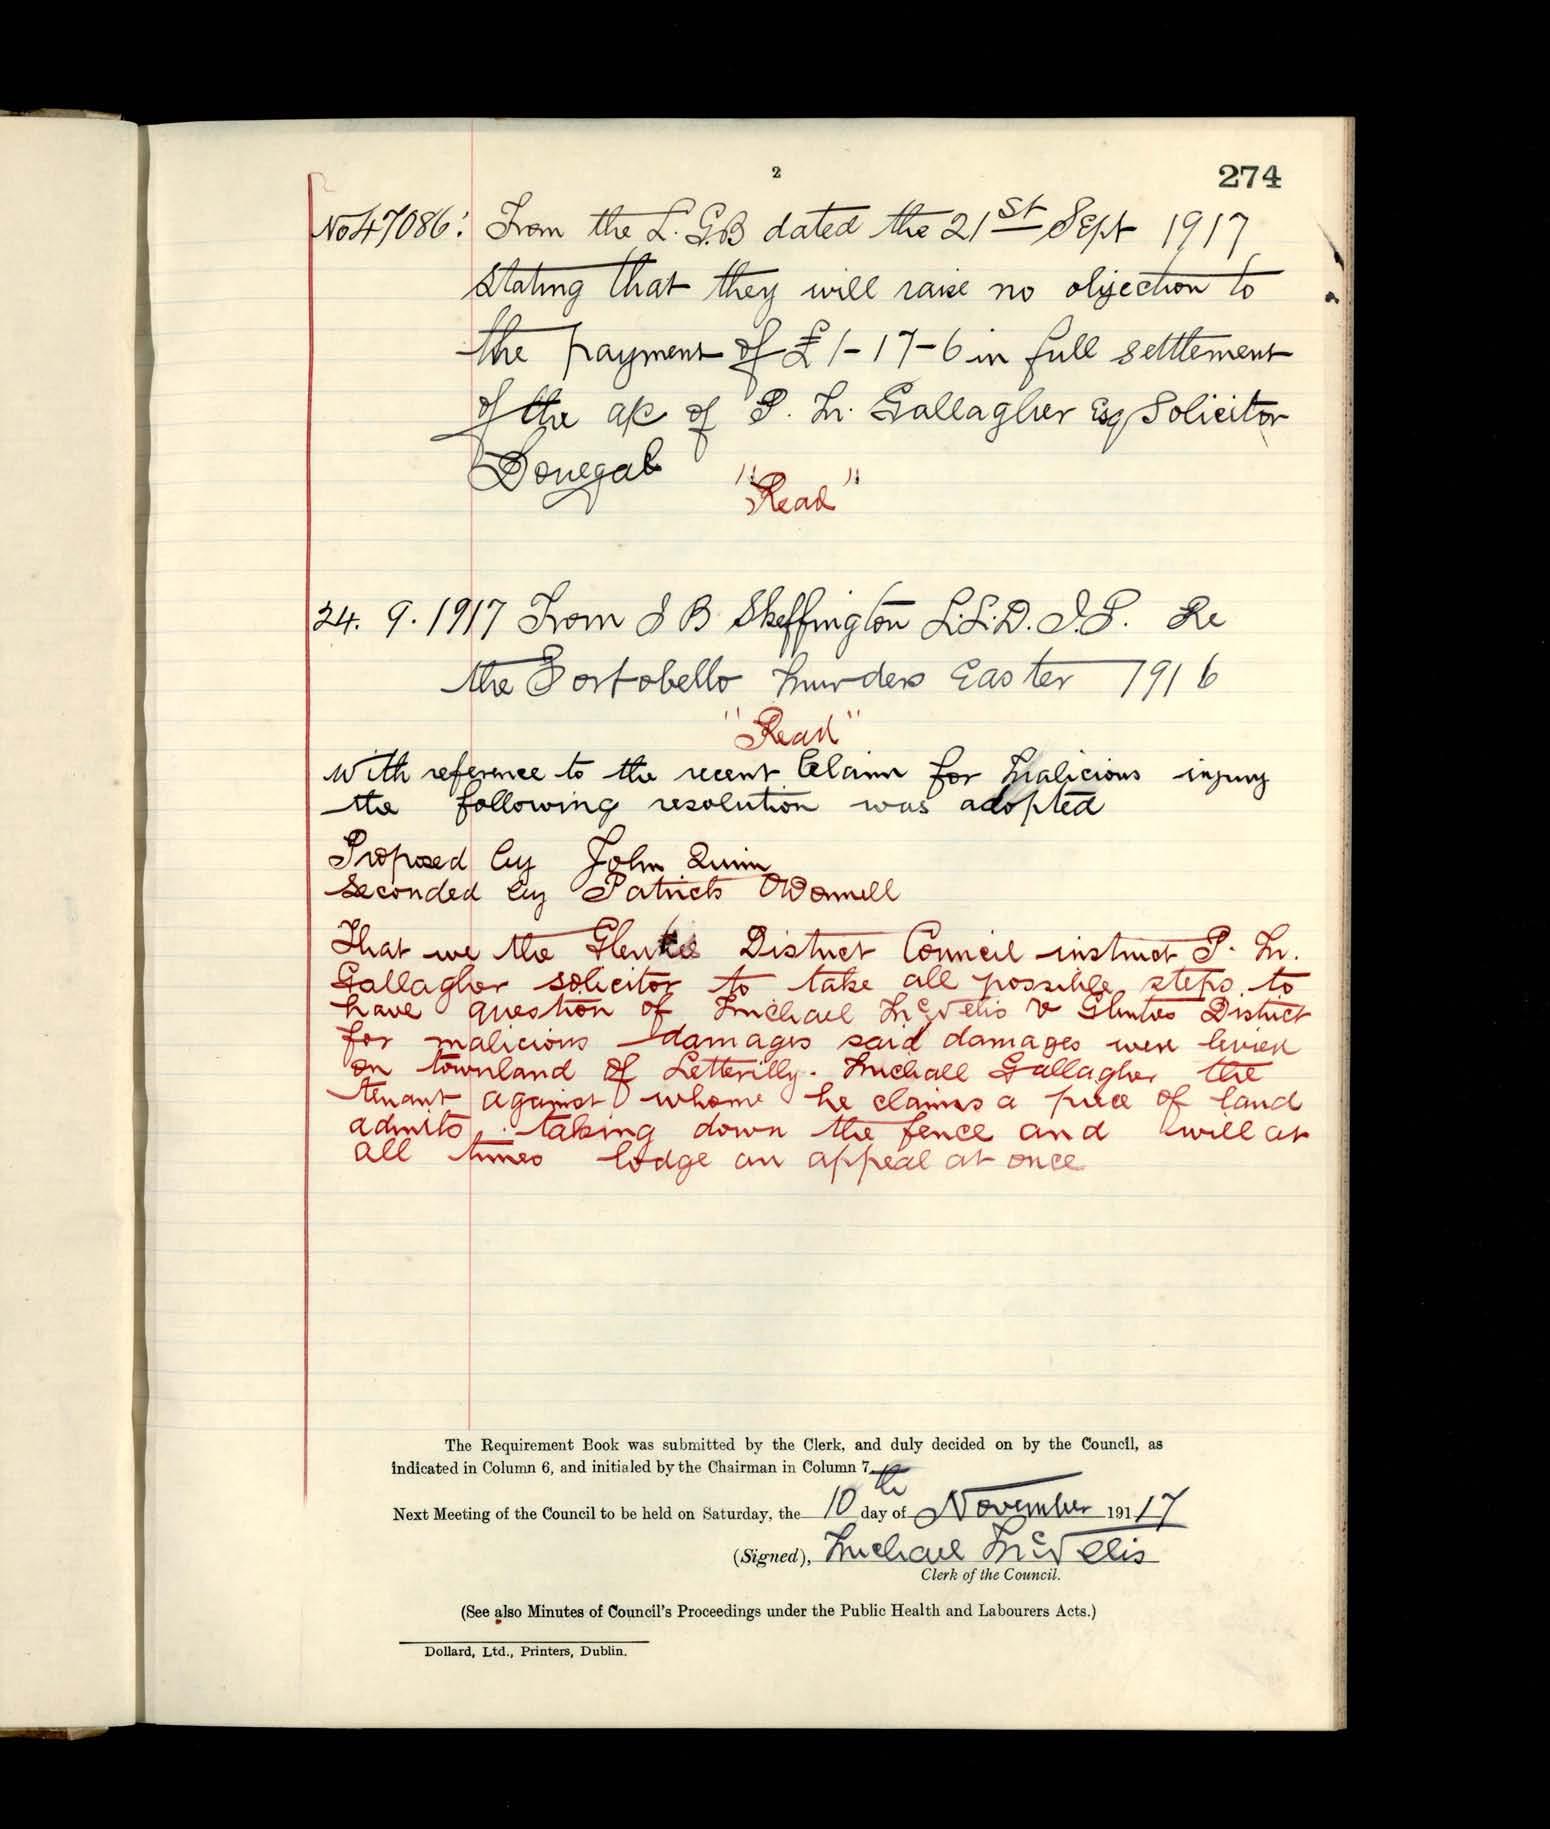 2
274
No 47086: From the L.G.B dated the 21st Sept 1917
stating that they will raise no objection to
the payment of £1-17-6 in full settlement
of the a/c of P. M. Gallagher Esq Solicitor
Donegal
"Read"
24. 9. 1917 From J B Skeffington L.L.D. J.P. Re
the Portobello Murders Easter 1916
"Read"
With reference to the recent Claim for Malicious injury
the following resolution was adopted
Proposed by John Quinn
Seconded by Patrick O'Donnell
That we the Glenties District Council instruct P. M.
Gallagher solicitor to take all possible steps to
have question of Michael McVelis v Glenties District
for malicious damages said damages were levied
on townland of Letterilly. Michael Gallagher the
tenant against whome he claims a piece of land
admits taking down the fence and will at
all times lodge an appeal at once
The Requirement Book was submitted by the Clerk, and duly decided on by the Council, as
indicated in Column 6, and initialed by the Chairman in Column 7.
Next Meeting of the Council to be held on Saturday, the 10th day of November 191 17
(Signed), Michael McVellis
Clerk of the Council.
(See also Minutes of Council's Proceedings under the Public Health and Labourers Acts.)
Dollard, Ltd., Printers, Dublin.